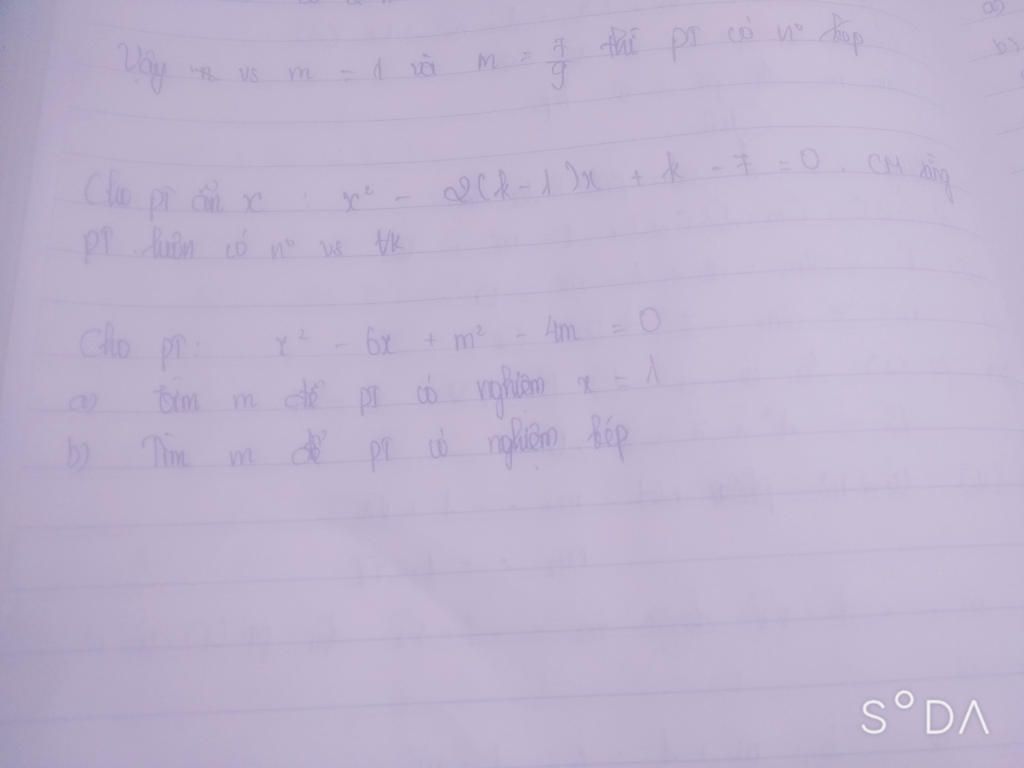 a)
b)
Vậy vs m = 1 và m = 7/9 thì pt có nº kép
Cho pt ẩn x : x² - 2(k-1)x + k - 7 = 0. CM rằng
pt luôn có nº vs ∀k
Cho pt: x² - 6x + m² - 4m = 0
a) tìm m để pt có nghiệm x = 1
b) Tìm m để pt có nghiệm kép
SODA